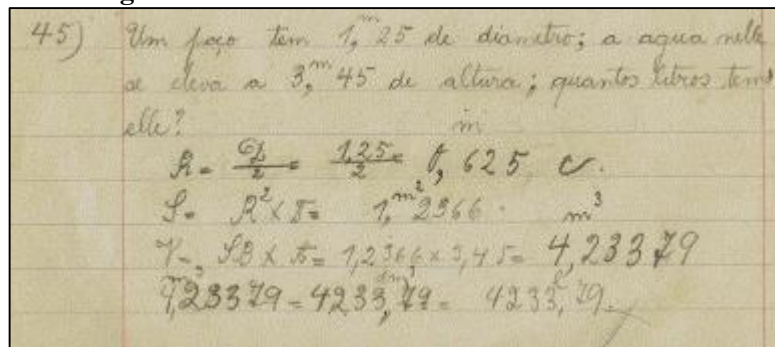 45) Um poço tem 1,ᵐ25 de diametro; a agua nelle
se eleva a 3,ᵐ45 de altura; quantos litros tem
elle?
R = D/2 = 1,25/2 = 0,ᵐ625 c.
S = R² × π = 1,ᵐ²2366
V = SB × A = 1,2366 × 3,45 = 4,ᵐ³23379
4,ᵐ³23379 = 4233,ᵈᵐ³79 = 4233,ˡ79.